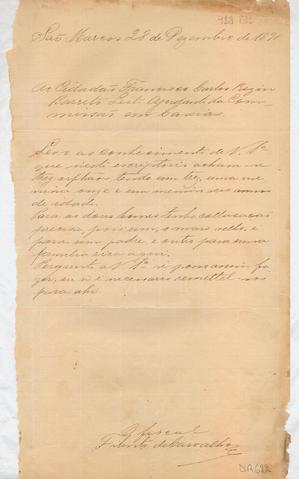 São Marcos 28 de Dezembro de 1891
Ao Cidadão Francisco Carlos
Barreto Leite Ajudante da Com
missão em Caxias.
Levo ao conhecimento de V. Sª
que neste escriptorio acham-se
tres orphãos, tendo um tres, uma me
nina onze e um menino seis annos
de idade.
Para os dous homens tenho collocação
precisa, pois um, o mais velho, é
para um padre, e outro para uma
familia aqui.
Pergunto a V. Sª se posso assim fa
zer, ou se é necessario remettel-os
para ahi.
O fiscal
de Carvalho